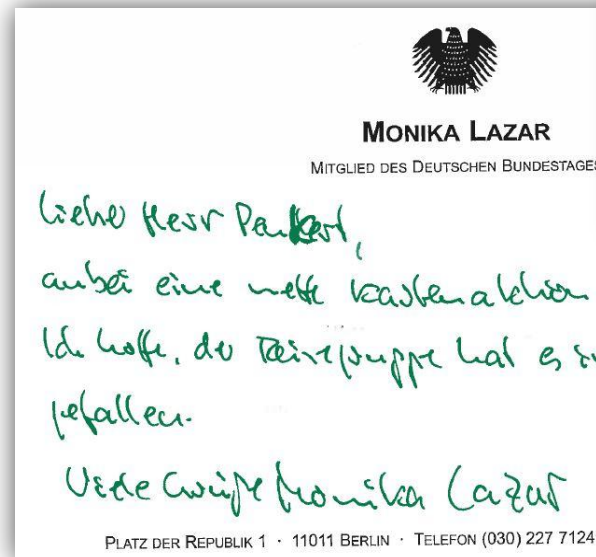 MONIKA LAZAR
MITGLIED DES DEUTSCHEN BUNDESTAGES
Lieber Herr
anbei eine nette Kartenaktion
Ich hoffe, der Reisegruppe hat es in
gefallen.
Viele Grüße Monika Lazar
PLATZ DER REPUBLIK 1 · 11011 BERLIN · TELEFON (030) 227 7124